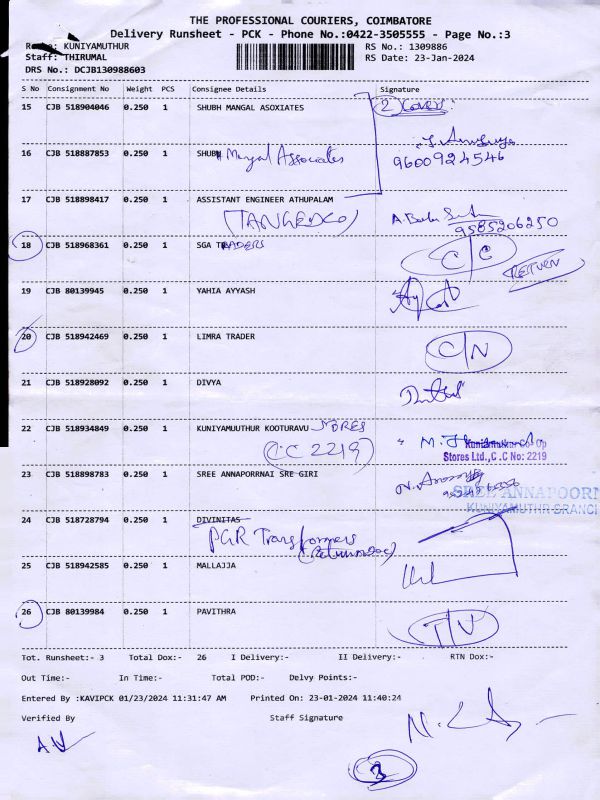 THE PROFESSIONAL COURIERS, COIMBATORE
Delivery Runsheet - PCK - Phone No.:0422-3505555 - Page No.:3
KUNIYAMUTHUR RS No.: 1309886
Staff: THIRUMAL RS Date: 23-Jan-2024
DRS No.: DCJB130988603
S No Consignment No Weight PCS Consignee Details Signature
15 CJB 518904046 0.250 1 SHUBH MANGAL ASOXIATES 2 Covers
16 CJB 518887853 0.250 1 SHUBH Mangal Associates 9600924546
17 CJB 518898417 0.250 1 ASSISTANT ENGINEER ATHUPALAM
(TANGEDCO) 9585206250
18 CJB 518968361 0.250 1 SGA TRADERS C/C RETURN
19 CJB 80139945 0.250 1 YAHIA AYYASH
20 CJB 518942469 0.250 1 LIMRA TRADER C/N
21 CJB 518928092 0.250 1 DIVYA
22 CJB 518934849 0.250 1 KUNIYAMUUTHUR KOOTURAVU STORES
(CC 2219) Stores Ltd.,C.C No: 2219
23 CJB 518898783 0.250 1 SREE ANNAPORRNAI SRE GIRI
SREE ANNAPOORN
KUNIYAMUTHR BRANCH
24 CJB 518728794 0.250 1 DIVINITAS
PGR Transformers
25 CJB 518942585 0.250 1 MALLAJJA
26 CJB 80139984 0.250 1 PAVITHRA
Tot. Runsheet:- 3 Total Dox:- 26 I Delivery:- II Delivery:- RTN Dox:-
Out Time:- In Time:- Total POD:- Delvy Points:-
Entered By :KAVIPCK 01/23/2024 11:31:47 AM Printed On: 23-01-2024 11:40:24
Verified By Staff Signature
3